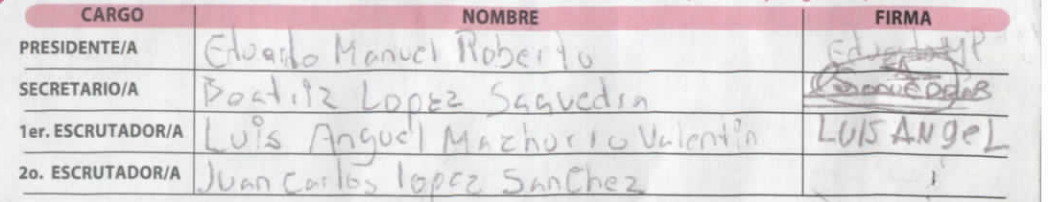 CARGO NOMBRE FIRMA
PRESIDENTE/A Eduardo Manuel Roberto
SECRETARIO/A Beatriz Lopez Saavedra
1er. ESCRUTADOR/A Luis Anguel Machorro Valentin LUIS ANgeL
2o. ESCRUTADOR/A Juan Carlos lopez Sanchez